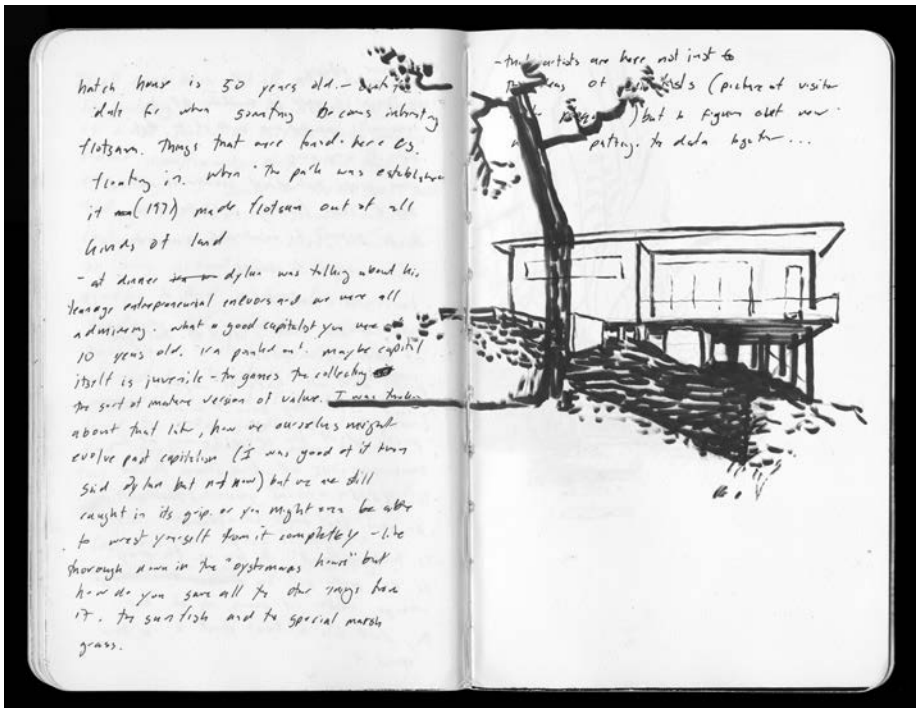 hatch house is 50 years old. –
date for when something becomes interesting
flotsam. Things that were found here by
floating in. when the park was established
it (197 ) made flotsam out of all
kinds of land
– at dinner dylan was talking about his
teenage entrepreneurial endevors and we were all
admiering. what a good capitalist you were at
10 years old. ira pointed out. maybe capital
itself is juvenile – the games the collecting
the sort of imature version of value. I was thinking
about that later, how we ourselves might
evolve past capitalism (I was good at it then
said dylan but not now) but we are still
caught in its grip. or you might even be able
to wrest yourself from it completely – like
thorough down in the "oystermans house" but
how do you save all the other things from
it. the sunfish and the special marsh
grass.
– artists are here not just to
of (picture at visitor
) but to figure out new
putting the data together ...